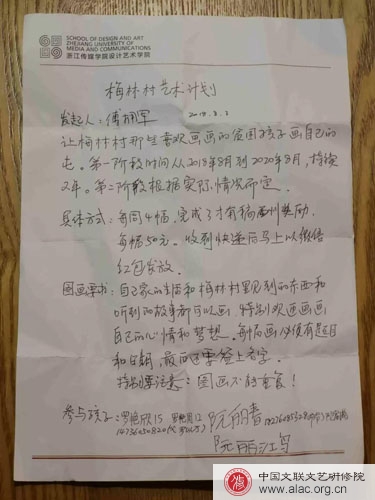 SCHOOL OF DESIGN AND ART
ZHEJIANG UNIVERSITY OF
MEDIA AND COMMUNICATIONS
浙江传媒学院设计艺术学院
梅林村艺术计划
发起人：傅拥军 2018.8.3
让梅林村那些喜欢画画的贫困孩子画自己的
屯。第一阶段时间从2018年8月到2020年8月，持续
2年。第二阶段根据实际情况而定。
具体方式：每周4幅，完成了才有稿费奖励，
每幅50元。收到快递后马上以微信
红包发放。
图画要求：自己家的事情和梅林村里见到的东西和
听到的故事都可以画，特别欢迎画画
自己的心情和梦想。每幅画必须有题目
和日期，最后还要签上名字。
特别要注意：图画不能重复！
参与孩子：罗艳欣15 罗艳 12 阮丽春
阮丽
中国文联文艺研修院
www.alac.org.cn